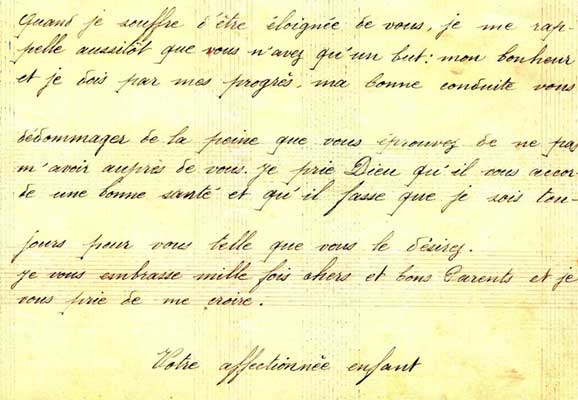 Quand je souffre d'être éloignée de vous, je me rap-
pelle aussitôt que vous n'avez qu'un but: mon bonheur
et je dois par mes progrès, ma bonne conduite vous
dédommager de la peine que vous éprouvez de ne pas
m'avoir auprès de vous. Je prie Dieu qu'il vous accor-
de une bonne santé et qu'il fasse que je sois tou-
jours pour vous telle que vous le désirez.
Je vous embrasse mille fois chers et bons Parents et je
vous prie de me croire.
Votre affectionnée enfant